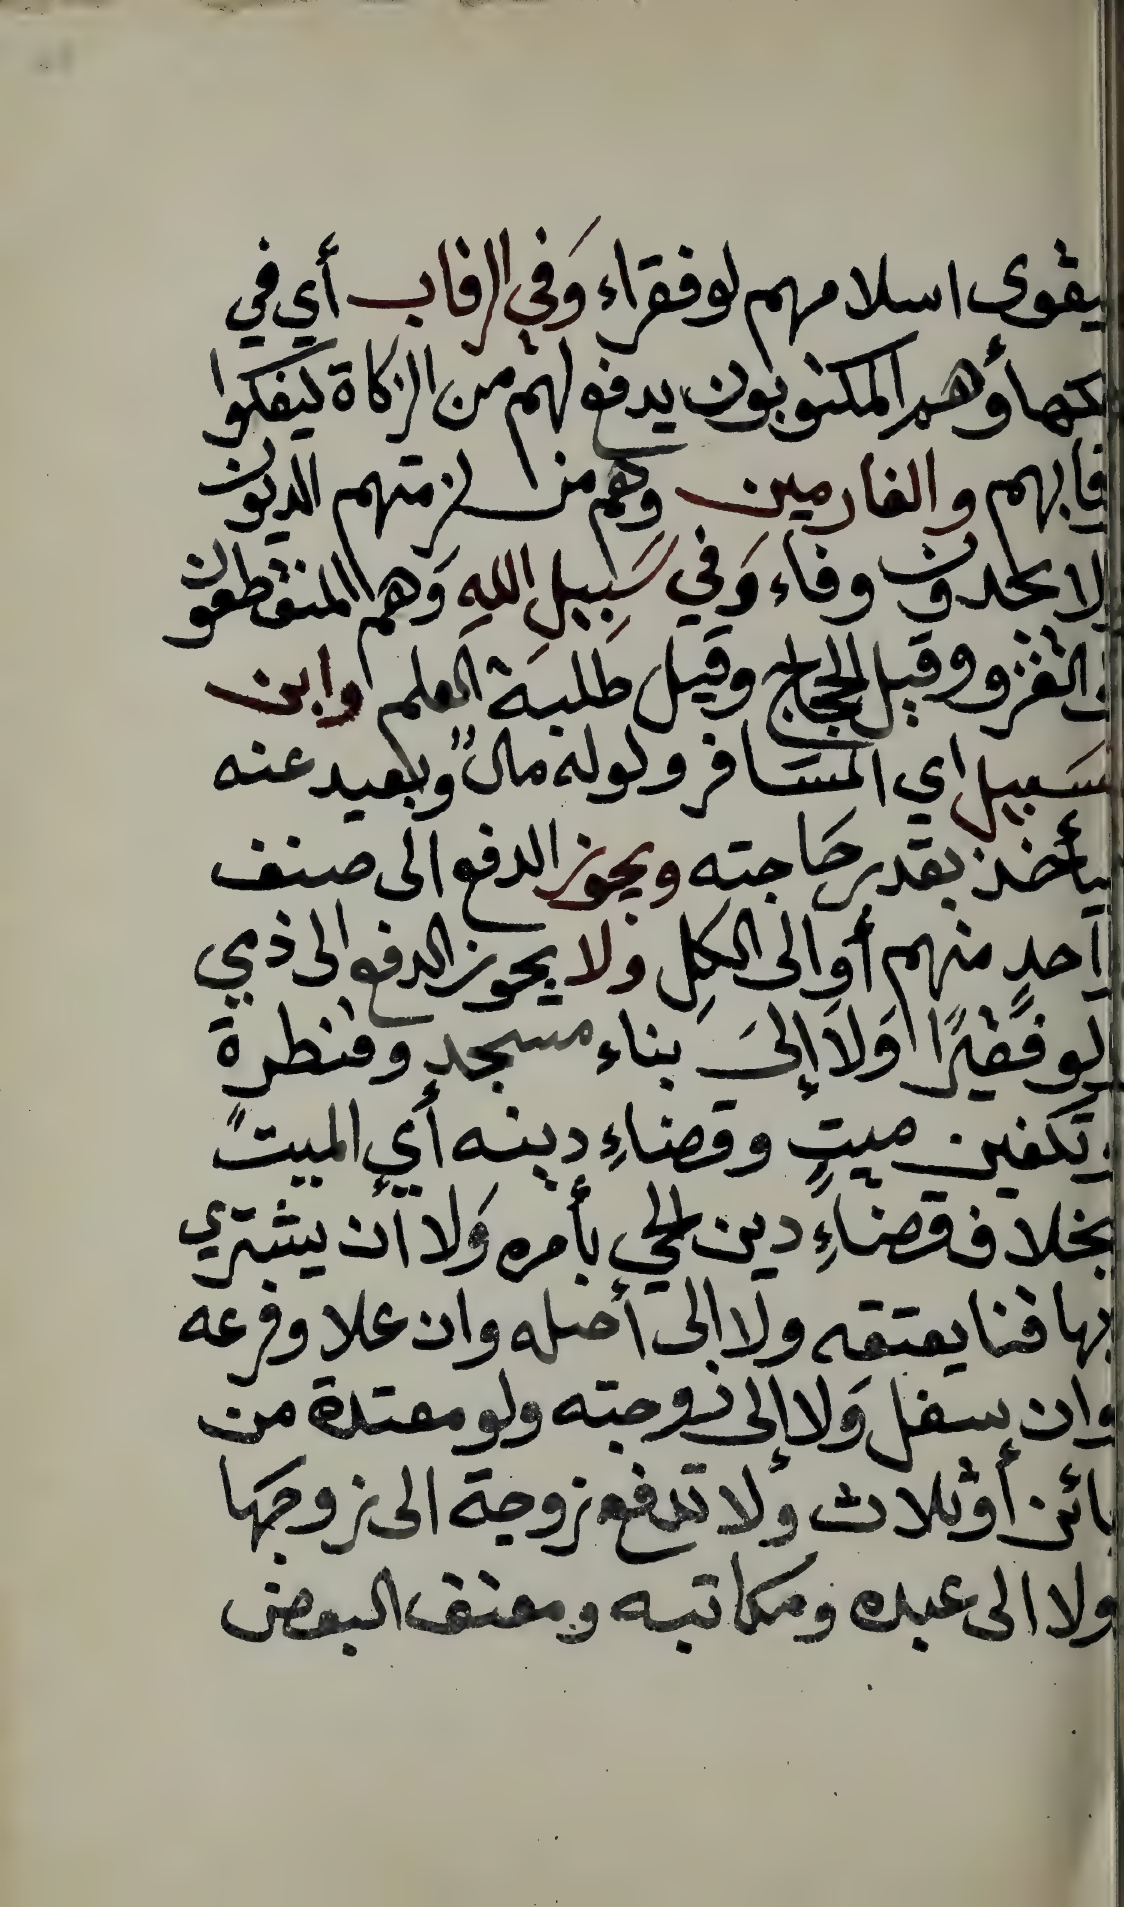 يقوى اسلامهم لو فقراء وَفي الرقاب أي في
فكها وهم المكتوبون يدفع لهم من الزكاة ليفكوا
قابهم والغارمين وهم من لزمتهم الديون
لا يجدون وفاء وَفي سَبِيلِ اللهِ وَهم المنقطعون
الغزو وقيل الحجاج وقيل طلبَة العلم وابن
سَبيل اي المسَافر ولو له مالٌ وبعيد عنه
يأخذ بقدر حَاجته ويجوز الدفع الى صنف
احدٍ منهم أو الى الكلِ ولا يجوز الدفع الى ذي
لو فقيرًا وَلَا إلىَ بناء مسجد وقنطرة
وتكفين ميتٍ وقضاءِ دينه أي الميت
بخلاف قضاءِ دين الحي بأمره وَلا أن يشتري
بها قنا يعتقه ولا الى أصله وان علا وفرعه
وان سفل وَلا إلى زوجته ولو معتدة من
بائن أو ثلاث ولا تدفع زوجة الى زوجها
ولا الى عبده ومكاتبه ومعتق البعض